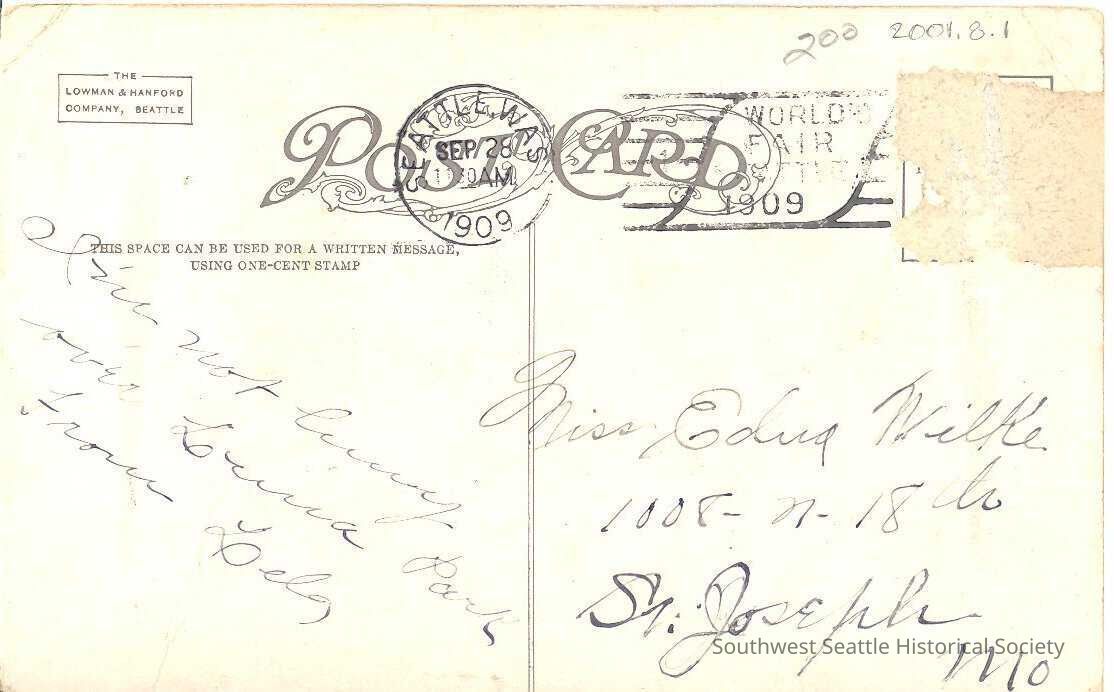 200 2001.8.1
THE
LOWMAN & HANFORD
COMPANY, SEATTLE
POST CARD
SEATTLE, WAS
SEP 28
AM
1909
WORLD'S
FAIR
1909
THIS SPACE CAN BE USED FOR A WRITTEN MESSAGE,
USING ONE-CENT STAMP
I'm not
over Luna Park
From
Miss Edna Wilke
1008- N- 18th
St. Joseph
Mo
Southwest Seattle Historical Society